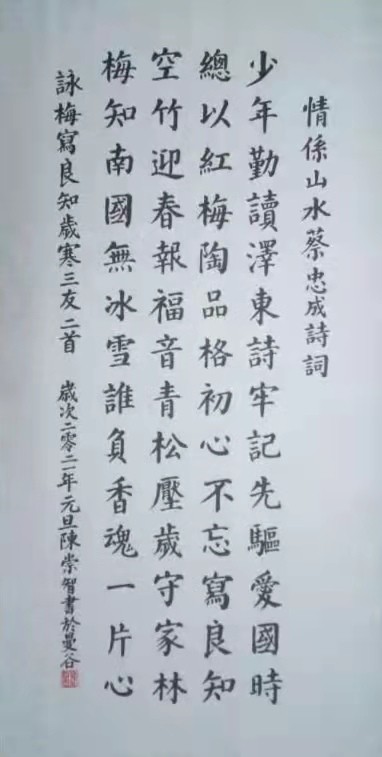 情係山水蔡忠成詩詞
少年勤讀澤東詩牢記先驅愛國時
總以紅梅陶品格初心不忘寫良知
空竹迎春報福音青松壓歲守家林
梅知南國無冰雪誰負香魂一片心
詠梅寫良知歲寒三友二首 歲次二零二一年元旦陳崇智書於曼谷